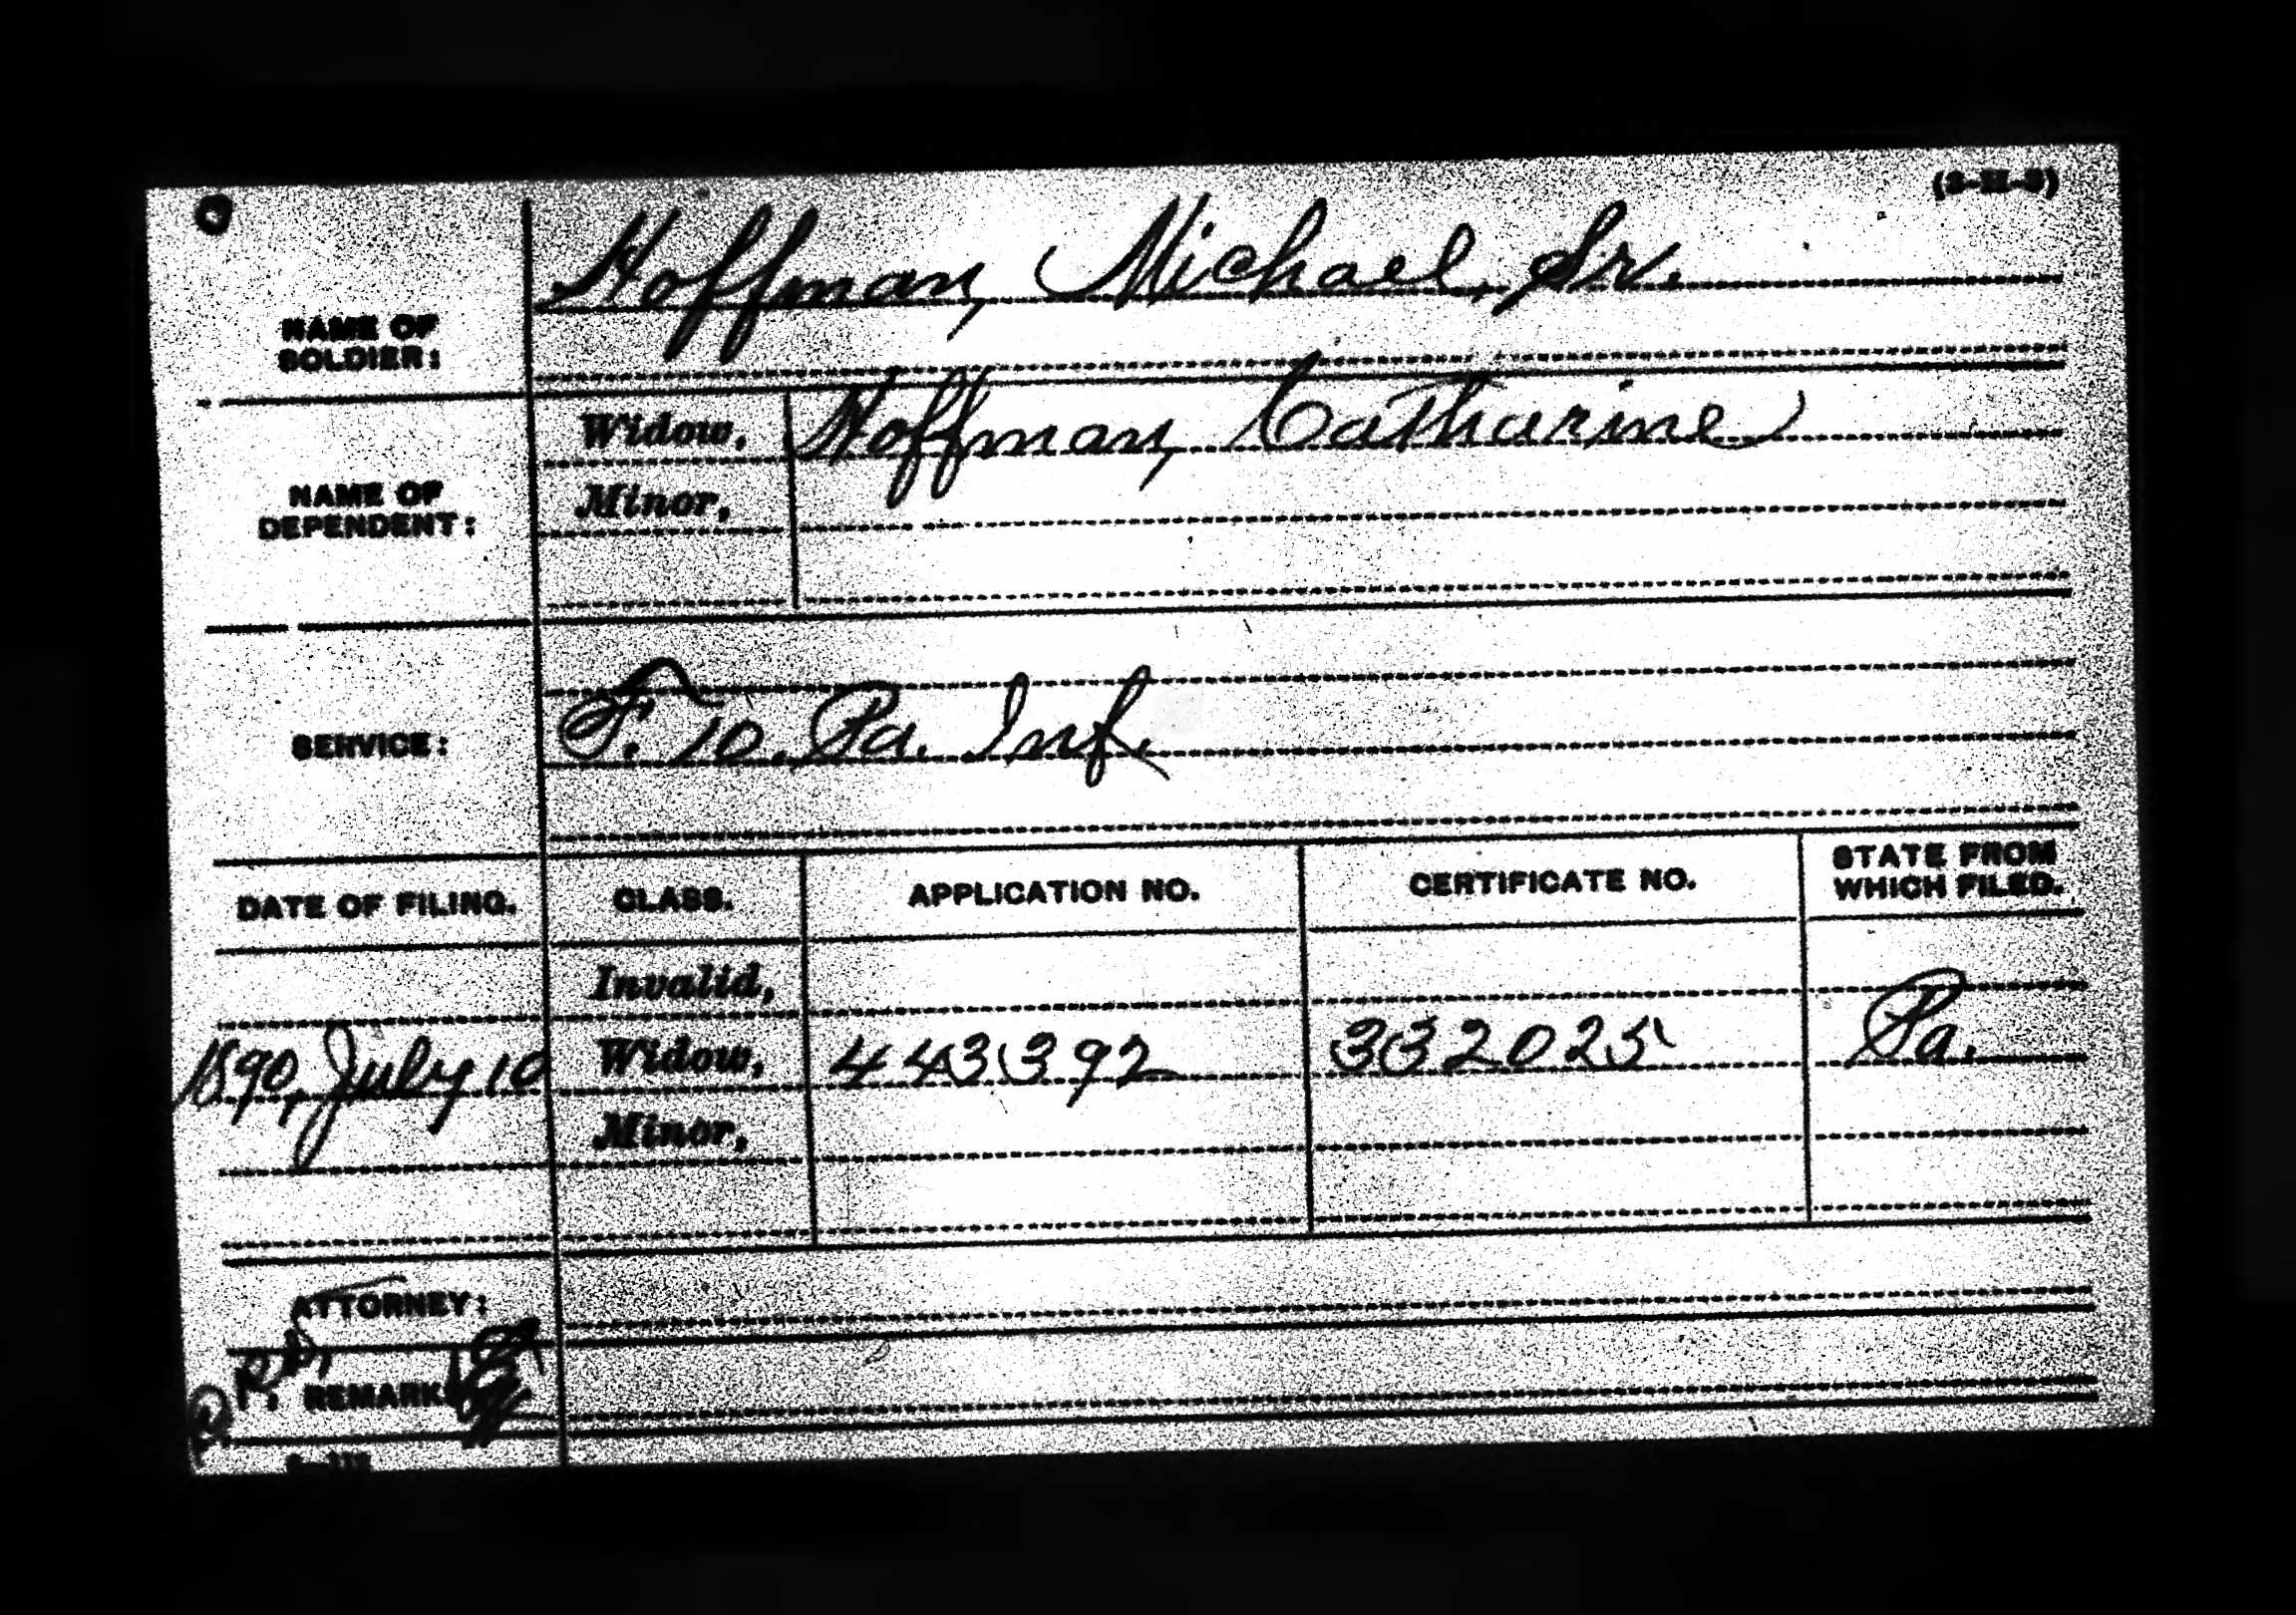 (3-H-3)
Hoffman, Michael, Sr.
NAME OF
SOLDIER:
Widow, Hoffman, Catharine
Minor,
NAME OF
DEPENDENT:
F. 10. Pa. Inf.
SERVICE:
DATE OF FILING. CLASS. APPLICATION NO. CERTIFICATE NO. STATE FROM
WHICH FILED.
Invalid,
1890, July 10 Widow, 443392 332025 Pa.
Minor,
ATTORNEY:
REMARKS